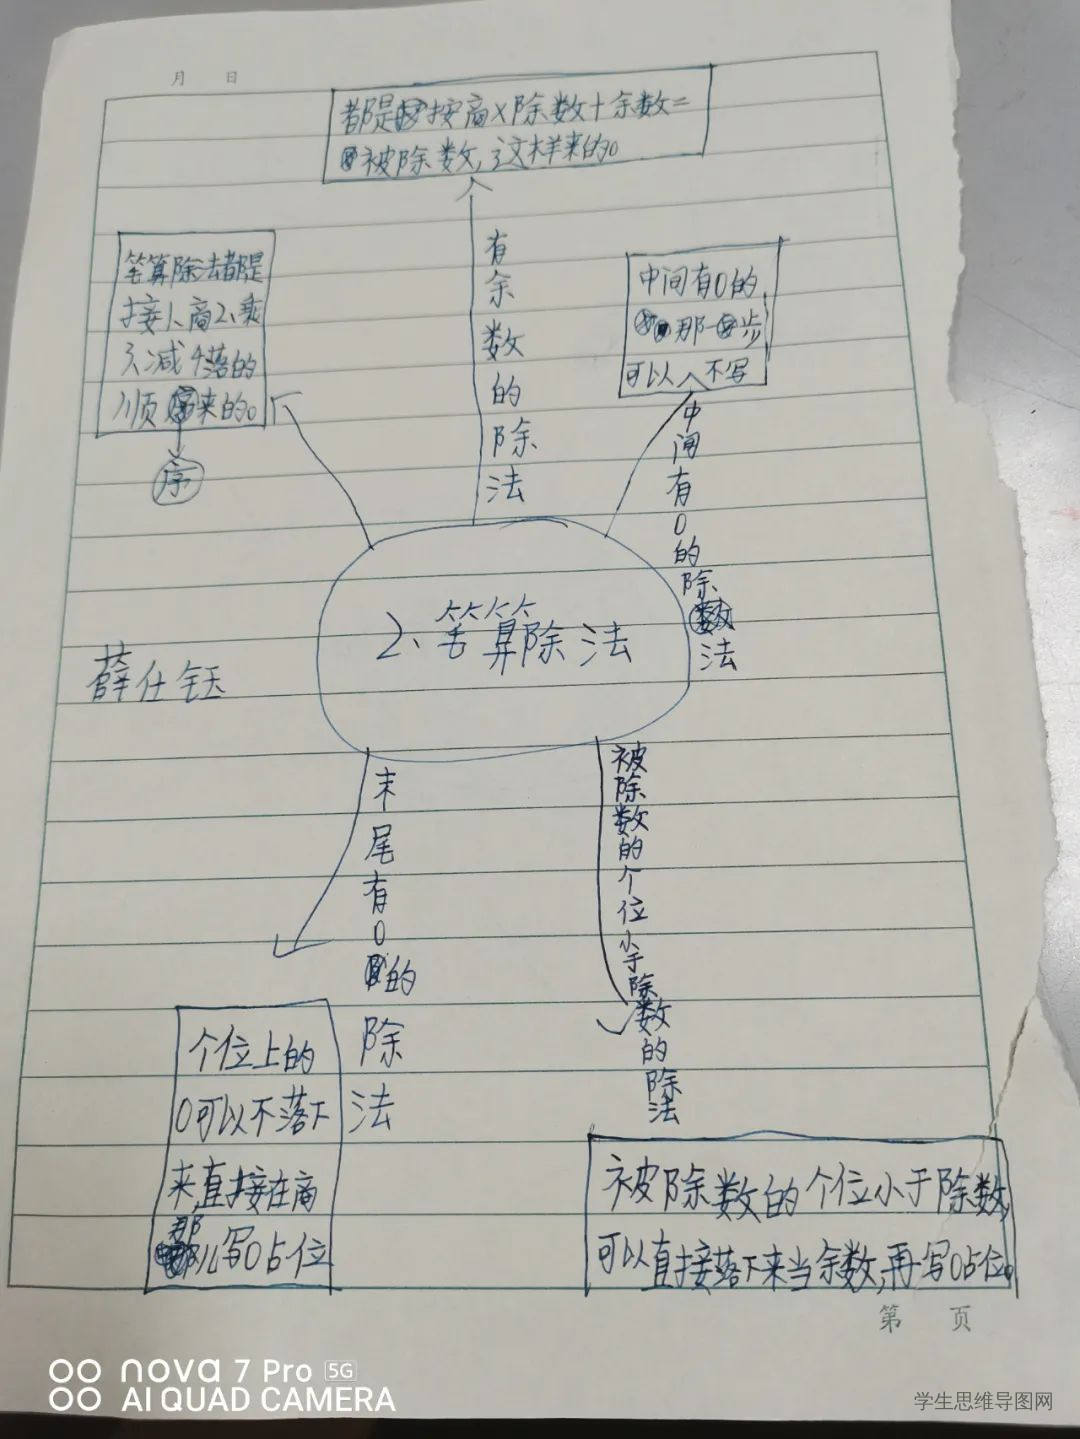 月 日
都是按商×除数+余数=
被除数,这样来的。
有余数的除法
笔算除法都是
按1、商2、乘
3、减4落的
顺来的。
序
中间有0的
那一步
可以不写
中间有0的除法
2、笔算除法
薛仕钰
末尾有0的除法
被除数的个位小于除数的除法
个位上的
0可以不落下
来,直接在商
那儿写0占位
被除数的个位小于除数,
可以直接落下来当余数,再写0占位。
第 页
nova 7 Pro 5G
AI QUAD CAMERA
学生思维导图网